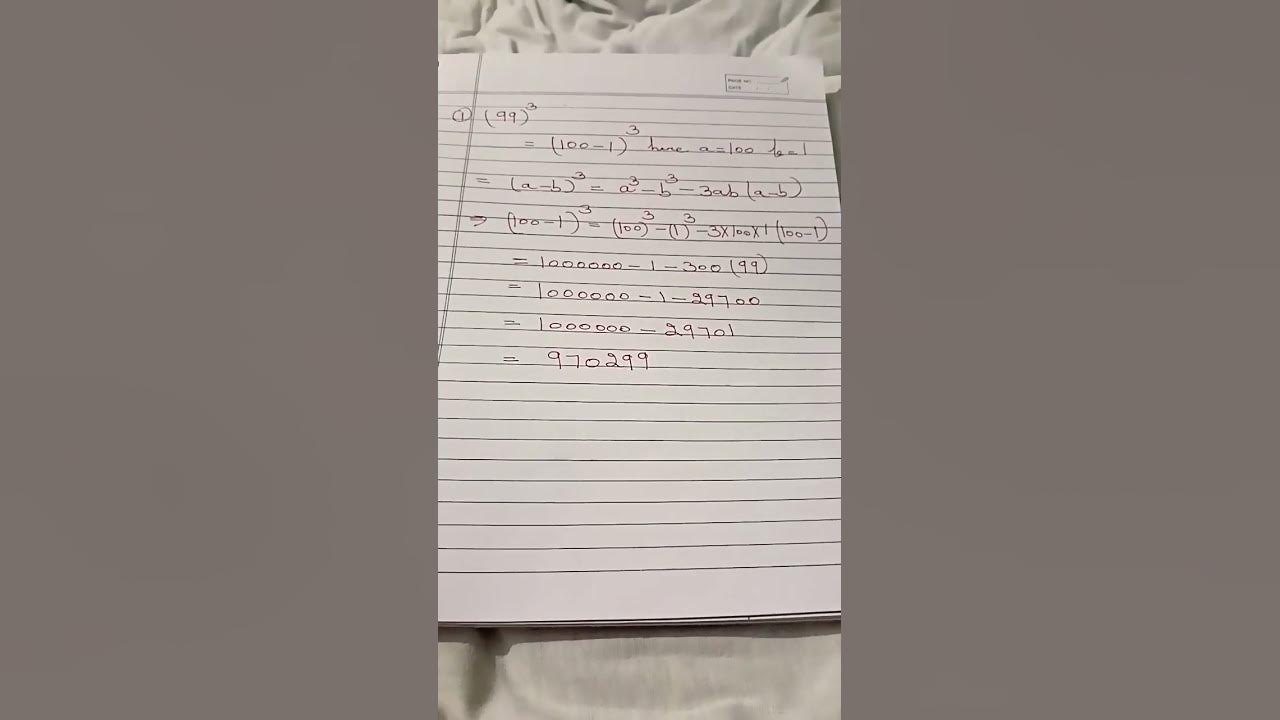 PAGE NO.
DATE
① (99)³
= (100-1)³ here a=100 b=1
= (a-b)³ = a³-b³-3ab(a-b)
⇒ (100-1)³ = (100)³-(1)³-3×100×1(100-1)
= 1000000-1-300(99)
= 1000000-1-29700
= 1000000-29701
= 970299